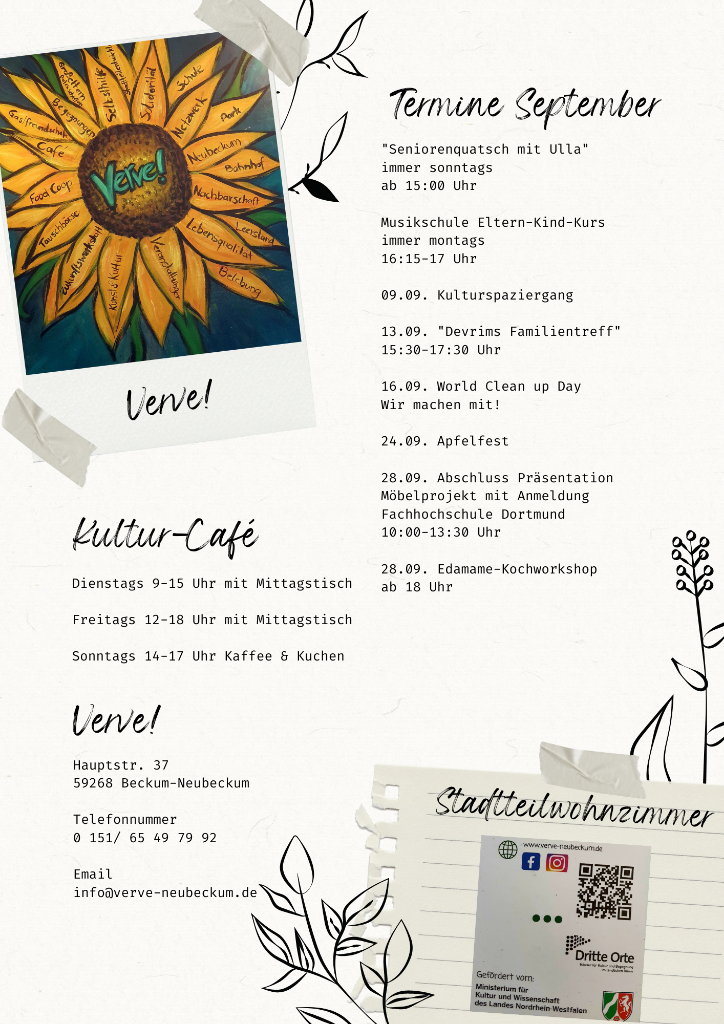 Selbsthilfe
Stickerei
Schule
Netzwerk
Park
Begegnungen
Gastfreundschaft
Café
Neubeckum
Bahnhof
Verve!
Food Coop
Nachbarschaft
Tauschbörse
Leerstand
Lebensqualität
Zukunftswerkstatt
Kunst & Kultur
Veranstaltungen
Belebung
Verve!
Kultur-Café
Dienstags 9-15 Uhr mit Mittagstisch
Freitags 12-18 Uhr mit Mittagstisch
Sonntags 14-17 Uhr Kaffee & Kuchen
Verve!
Hauptstr. 37
59268 Beckum-Neubeckum
Telefonnummer
0 151/ 65 49 79 92
Email
info@verve-neubeckum.de
Termine September
"Seniorenquatsch mit Ulla"
immer sonntags
ab 15:00 Uhr
Musikschule Eltern-Kind-Kurs
immer montags
16:15-17 Uhr
09.09. Kulturspaziergang
13.09. "Devrims Familientreff"
15:30-17:30 Uhr
16.09. World Clean up Day
Wir machen mit!
24.09. Apfelfest
28.09. Abschluss Präsentation
Möbelprojekt mit Anmeldung
Fachhochschule Dortmund
10:00-13:30 Uhr
28.09. Edamame-Kochworkshop
ab 18 Uhr
Stadtteilwohnzimmer
www.verve-neubeckum.de
Dritte Orte
Gefördert vom:
Ministerium für
Kultur und Wissenschaft
des Landes Nordrhein-Westfalen